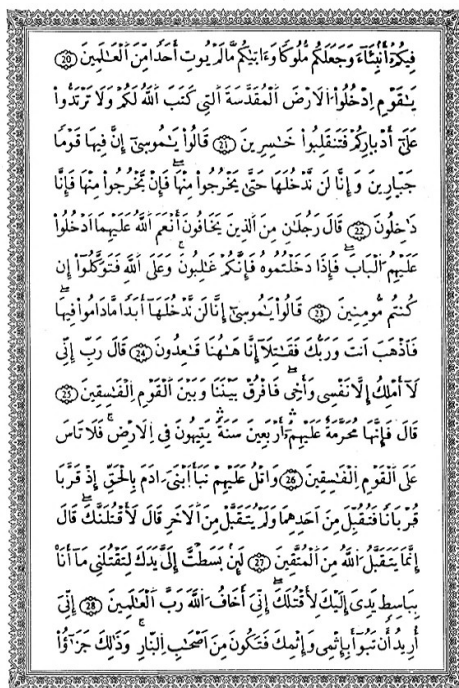 فِيكُمُۥٓ أَنۢبِئَآءَ وَجَعَلَكُم مُّلُوكًا وَءَاتٜيٰكُم مَّا لَمْ يُوتِ أَحَدًا مِّنَ اَ۬لْعَٰلَمِينَۖ 20
يَٰقَوْمِ اِ۟دْخُلُواْ اُ۬لَارْضَ اَ۬لْمُقَدَّسَةَ اَ۬لتِے كَتَبَ اَ۬للَّهُ لَكُمْ وَلَا تَرْتَدُّواْ
عَلَيٰٓ أَدْبٰ۪رِكُمْ فَتَنقَلِبُواْ خَٰسِرِينَۖ 21 قَالُواْ يَٰمُوس۪يٰٓ إِنَّ فِيهَا قَوْمًا
جَبّ۪ارِينَ وَإِنَّا لَن نَّدْخُلَهَا حَتَّيٰ يَخْرُجُواْ مِنْهَاۖ فَإِنْ يَّخْرُجُواْ مِنْهَا فَإِنَّا
دَٰخِلُونَۖ 22 قَالَ رَجُلَٰنِ مِنَ اَ۬لذِينَ يَخَافُونَ أَنْعَمَ اَ۬للَّهُ عَلَيْهِمَا اَ۟دْخُلُواْ
عَلَيْهِمُ اُ۬لْبَابَۖ فَإِذَا دَخَلْتُمُوهُ فَإِنَّكُمْ غَٰلِبُونَۖ وَعَلَي اَ۬للَّهِ فَتَوَكَّلُوٓاْ إِن
كُنتُم مُّومِنِينَۖ 23 قَالُواْ يَٰمُوس۪يٰٓ إِنَّا لَن نَّدْخُلَهَآ أَبَدًا مَّا دَامُواْ فِيهَاۖ
فَاذْهَبَ اَنتَ وَرَبُّكَ فَقَٰتِلَآ إِنَّا هَٰهُنَا قَٰعِدُونَۖ 24 قَالَ رَبِّ إِنِّے
لَآ أَمْلِكُ إِلَّا نَفْسِے وَأَخِےۖ فَافْرُقْ بَيْنَنَا وَبَيْنَ اَ۬لْقَوْمِ اِ۬لْفَٰسِقِينَۖ 25
قَالَ فَإِنَّهَا مُحَرَّمَةٌ عَلَيْهِمُۥٓ أَرْبَعِينَ سَنَةً يَتِيهُونَ فِے اِ۬لَارْضِۖ فَلَا تَاسَ
عَلَي اَ۬لْقَوْمِ اِ۬لْفَٰسِقِينَۖ 26 وَاتْلُ عَلَيْهِمْ نَبَأَ اَ۪بْنَےَ اٰدَمَ بِالْحَقِّ إِذْ قَرَّبَا
قُرْبَانًا فَتُقُبِّلَ مِنَ اَحَدِهِمَا وَلَمْ يُتَقَبَّلْ مِنَ اَ۬لَاخَرِ قَالَ لَأَقْتُلَنَّكَۖ قَالَ
إِنَّمَا يَتَقَبَّلُ اُ۬للَّهُ مِنَ اَ۬لْمُتَّقِينَۖ 27 لَئِنۢ بَسَطتَّ إِلَيَّ يَدَكَ لِتَقْتُلَنِے مَآ أَنَا
بِبَاسِطٍ يَدِيَ إِلَيْكَ لِأَقْتُلَكَۖ إِنِّيَ أَخَافُ اُ۬للَّهَ رَبَّ اَ۬لْعَٰلَمِينَۖ 28 إِنِّيَ
أُرِيدُ أَن تَبُوٓأَ بِإِثْمِے وَإِثْمِكَ فَتَكُونَ مِنَ اَصْحَٰبِ اِ۬لنّ۪ارِۖ وَذَٰلِكَ جَزَٰٓؤُاْ